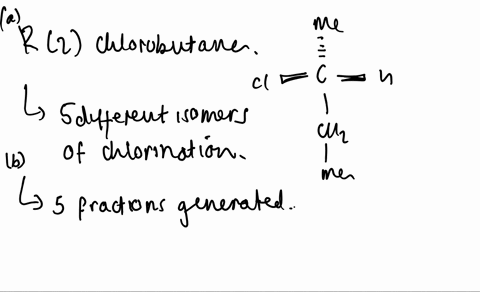 (a)
R (2) chlorobutane.
↳ 5 different isomers
of chlorination.
(b)
↳ 5 fractions generated.
Me
Cl C H
CH2
Me